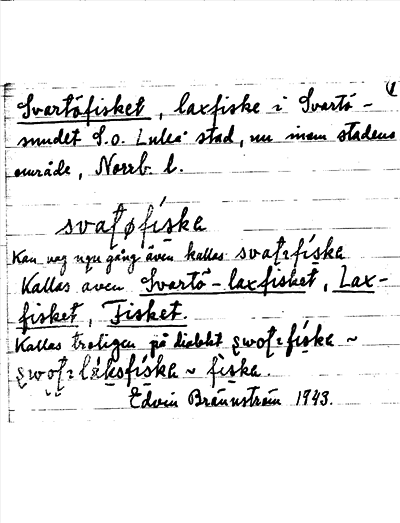 Svartöfisket, laxfiske i Svartö-
sundet S.o. Luleå stad, nu inom stadens
område, Norrb. l.
svaṭøfi̇́ska
Kan nog ngn gång även kallas svaṭ₂fi̇́ska
Kallas även Svartö-laxfisket, Lax-
fisket, Fisket.
Kallas troligen på dialekt ~
~ fi̇ska.
Edvin Brännström 1943.